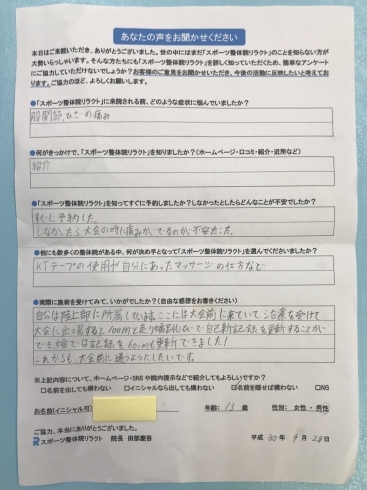 あなたの声をお聞かせください
本日はご来院いただき、ありがとうございました。世の中にはまだ「スポーツ整体院リラクト」のことを知らない方が
大勢いらっしゃいます。そんな方たちにも「スポーツ整体院リラクト」を詳しく知っていただくため、簡単なアンケート
にご協力していただけないでしょうか?お客様のご意見をお聞かせいただき、今後の活動に反映したいと考えてお
ります。ご協力のほど、よろしくお願いします。
●「スポーツ整体院リラクト」に来院される前、どのような症状に悩んでいましたか?
股関節、ひざの痛み
●何がきっかけで、「スポーツ整体院リラクト」を知りましたか?(ホームページ・口コミ・紹介・近所など)
紹介
●「スポーツ整体院リラクト」を知ってすぐに予約しましたか?しなかったとしたらどんなことが不安でしたか?
すぐに予約した。
しなかったら、大会の時に痛みがでるのが不安だった。
●他にも数多くの整体院がある中、何が決め手となって「スポーツ整体院リラクト」を選んでくださいましたか?
KTテープの使用や自分にあったマッサージの仕方など
●実際に施術を受けてみて、いかがでしたか?(自由な感想をお書きください)
自分は陸上部に所属しています。ここには大会前に来ていて、治療を受けて
大会に出場すると100mと走り幅跳びで自己新記録を更新することが
でき幅では記録を60cmも更新できました!
これからも大会前に通おうとしたいです。
※上記内容について、ホームページ・SNSや院内提示などで紹介してもよろしいですか?
□名前を出しても構わない □イニシャルなら出しても構わない ☑名前を隠せば構わない □NG
お名前(イニシャル可) 年齢: 13 歳 性別: 女性・男性
ご協力、本当にありがとうございました。
スポーツ整体院リラクト 院長 田部慶吾 平成 30年 9月 28日